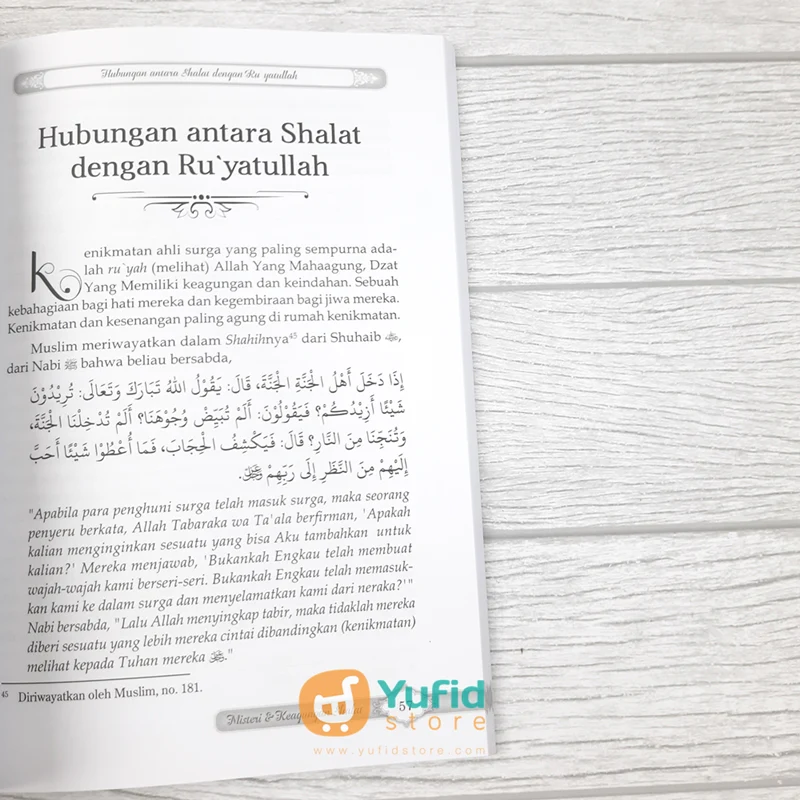 Hubungan antara Shalat dengan Ru`yatullah
Hubungan antara Shalat
dengan Ru`yatullah
Kenikmatan ahli surga yang paling sempurna ada-
lah ru`yah (melihat) Allah Yang Mahaagung, Dzat
Yang Memiliki keagungan dan keindahan. Sebuah
kebahagiaan bagi hati mereka dan kegembiraan bagi jiwa mereka.
Kenikmatan dan kesenangan paling agung di rumah kenikmatan.
Muslim meriwayatkan dalam Shahihnya⁴⁵ dari Shuhaib ﷺ,
dari Nabi ﷺ bahwa beliau bersabda,
إِذَا دَخَلَ أَهْلُ الْجَنَّةِ الْجَنَّةَ، قَالَ: يَقُوْلُ اللهُ تَبَارَكَ وَتَعَالَى: تُرِيْدُوْنَ
شَيْئًا أَزِيْدُكُمْ؟ فَيَقُوْلُوْنَ: أَلَمْ تُبَيِّضْ وُجُوْهَنَا؟ أَلَمْ تُدْخِلْنَا الْجَنَّةَ،
وَتُنَجِّنَا مِنَ النَّارِ؟ قَالَ: فَيَكْشِفُ الْحِجَابَ، فَمَا أُعْطُوْا شَيْئًا أَحَبَّ
إِلَيْهِمْ مِنَ النَّظَرِ إِلَى رَبِّهِمْ ﷻ.
"Apabila para penghuni surga telah masuk surga, maka seorang
penyeru berkata, Allah Tabaraka wa Ta'ala berfirman, 'Apakah
kalian menginginkan sesuatu yang bisa Aku tambahkan untuk
kalian?' Mereka menjawab, 'Bukankah Engkau telah membuat
wajah-wajah kami berseri-seri. Bukankah Engkau telah memasuk-
kan kami ke dalam surga dan menyelamatkan kami dari neraka?'"
Nabi bersabda, "Lalu Allah menyingkap tabir, maka tidaklah mereka
diberi sesuatu yang lebih mereka cintai dibandingkan (kenikmatan)
melihat kepada Tuhan mereka ﷻ."
45 Diriwayatkan oleh Muslim, no. 181.
Misteri & Keagungan Shalat 57
Yufid
store
www.yufidstore.com